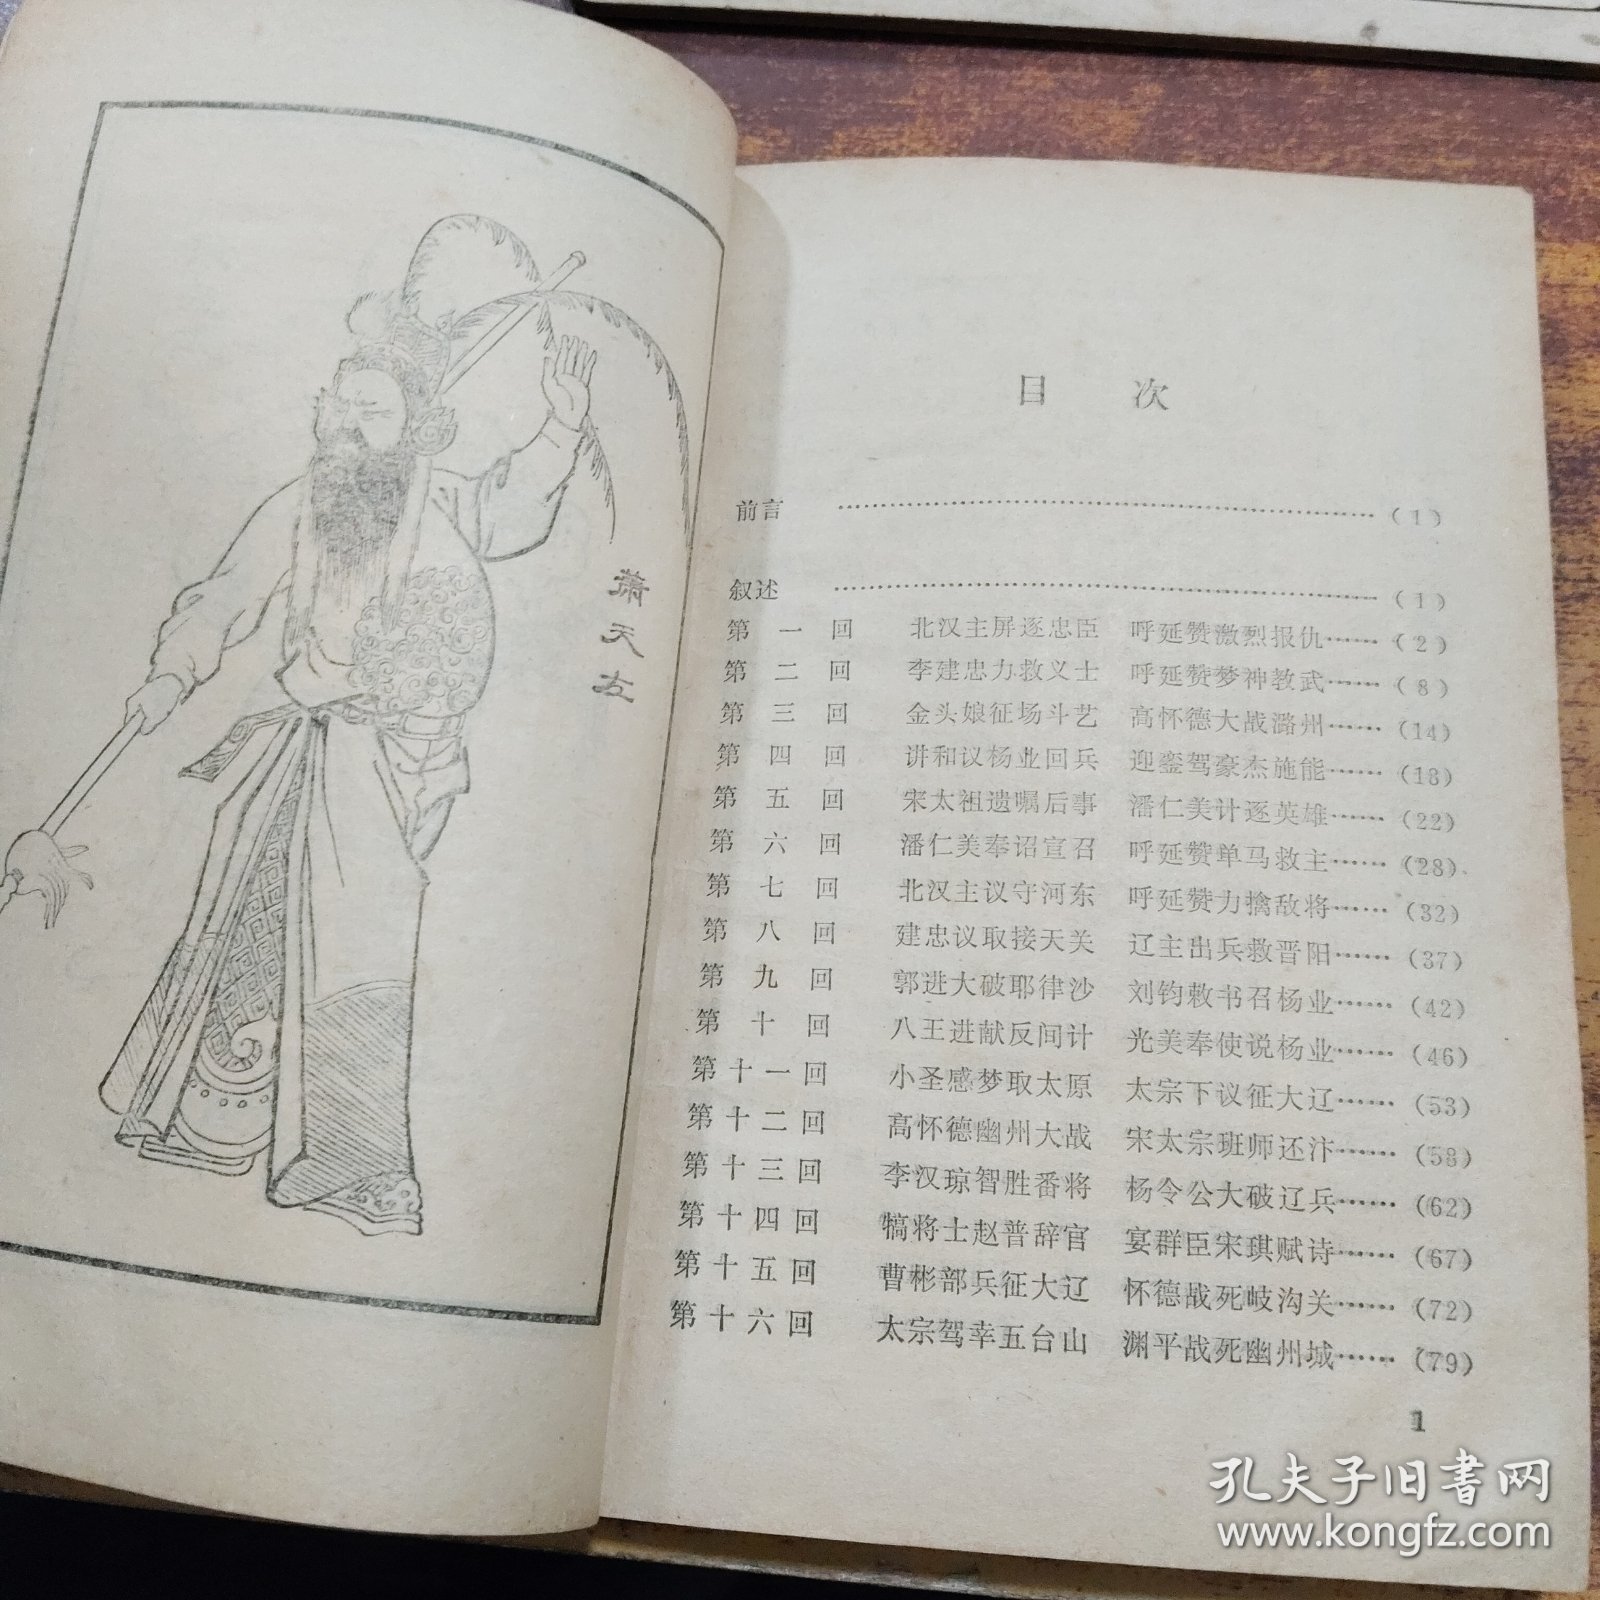 萧天左
目 次
前言 ……………………………………………… (1)
叙述 ……………………………………………… (1)
第一回 北汉主屏逐忠臣 呼延赞激烈报仇…… (2)
第二回 李建忠力救义士 呼延赞梦神教武…… (8)
第三回 金头娘征场斗艺 高怀德大战潞州…… (14)
第四回 讲和议杨业回兵 迎銮驾豪杰施能…… (18)
第五回 宋太祖遗嘱后事 潘仁美计逐英雄…… (22)
第六回 潘仁美奉诏宣召 呼延赞单马救主…… (28)
第七回 北汉主议守河东 呼延赞力擒敌将…… (32)
第八回 建忠议取接天关 辽主出兵救晋阳…… (37)
第九回 郭进大破耶律沙 刘钧敕书召杨业…… (42)
第十回 八王进献反间计 光美奉使说杨业…… (46)
第十一回 小圣感梦取太原 太宗下议征大辽…… (53)
第十二回 高怀德幽州大战 宋太宗班师还汴…… (58)
第十三回 李汉琼智胜番将 杨令公大破辽兵…… (62)
第十四回 犒将士赵普辞官 宴群臣宋琪赋诗…… (67)
第十五回 曹彬部兵征大辽 怀德战死岐沟关…… (72)
第十六回 太宗驾幸五台山 渊平战死幽州城…… (79)
1
孔夫子旧书网
www.kongfz.com